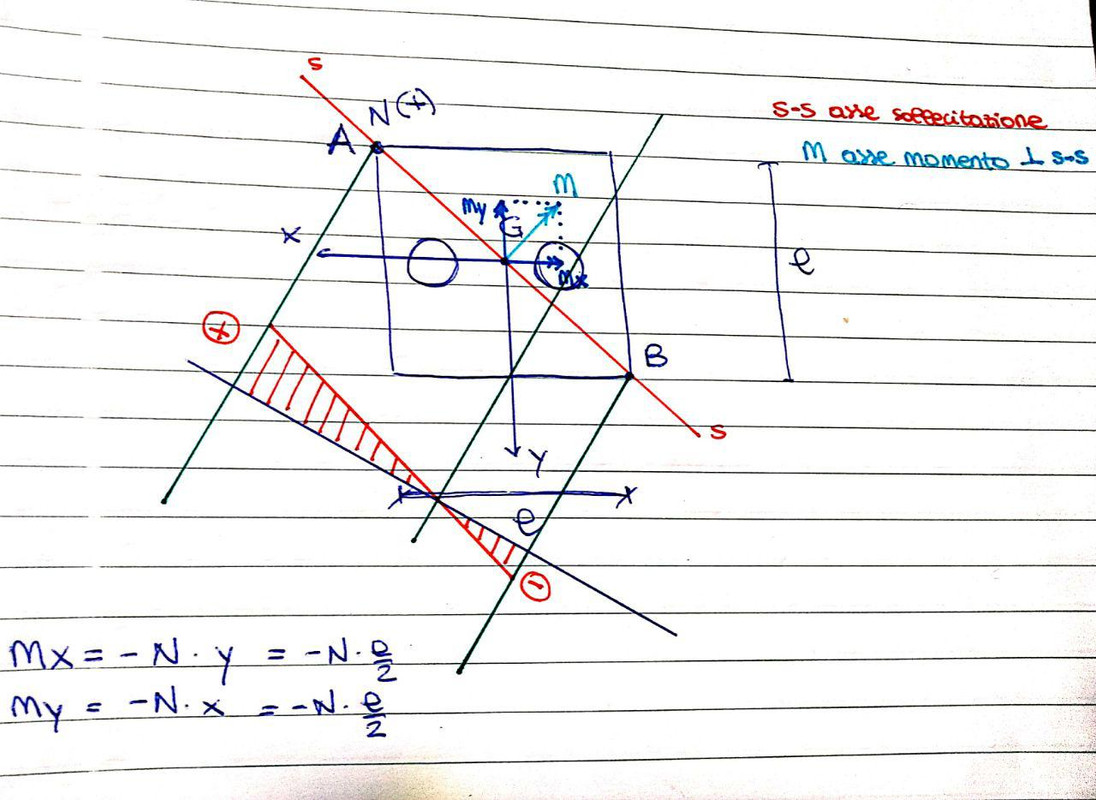 s
N(+)
A
s-s asse sollecitazione
M asse momento ⊥ s-s
M
My
G
x
Mx
l
+
B
s
Y
l
-
Mx = -N · y = -N · l/2
My = -N · x = -N · l/2